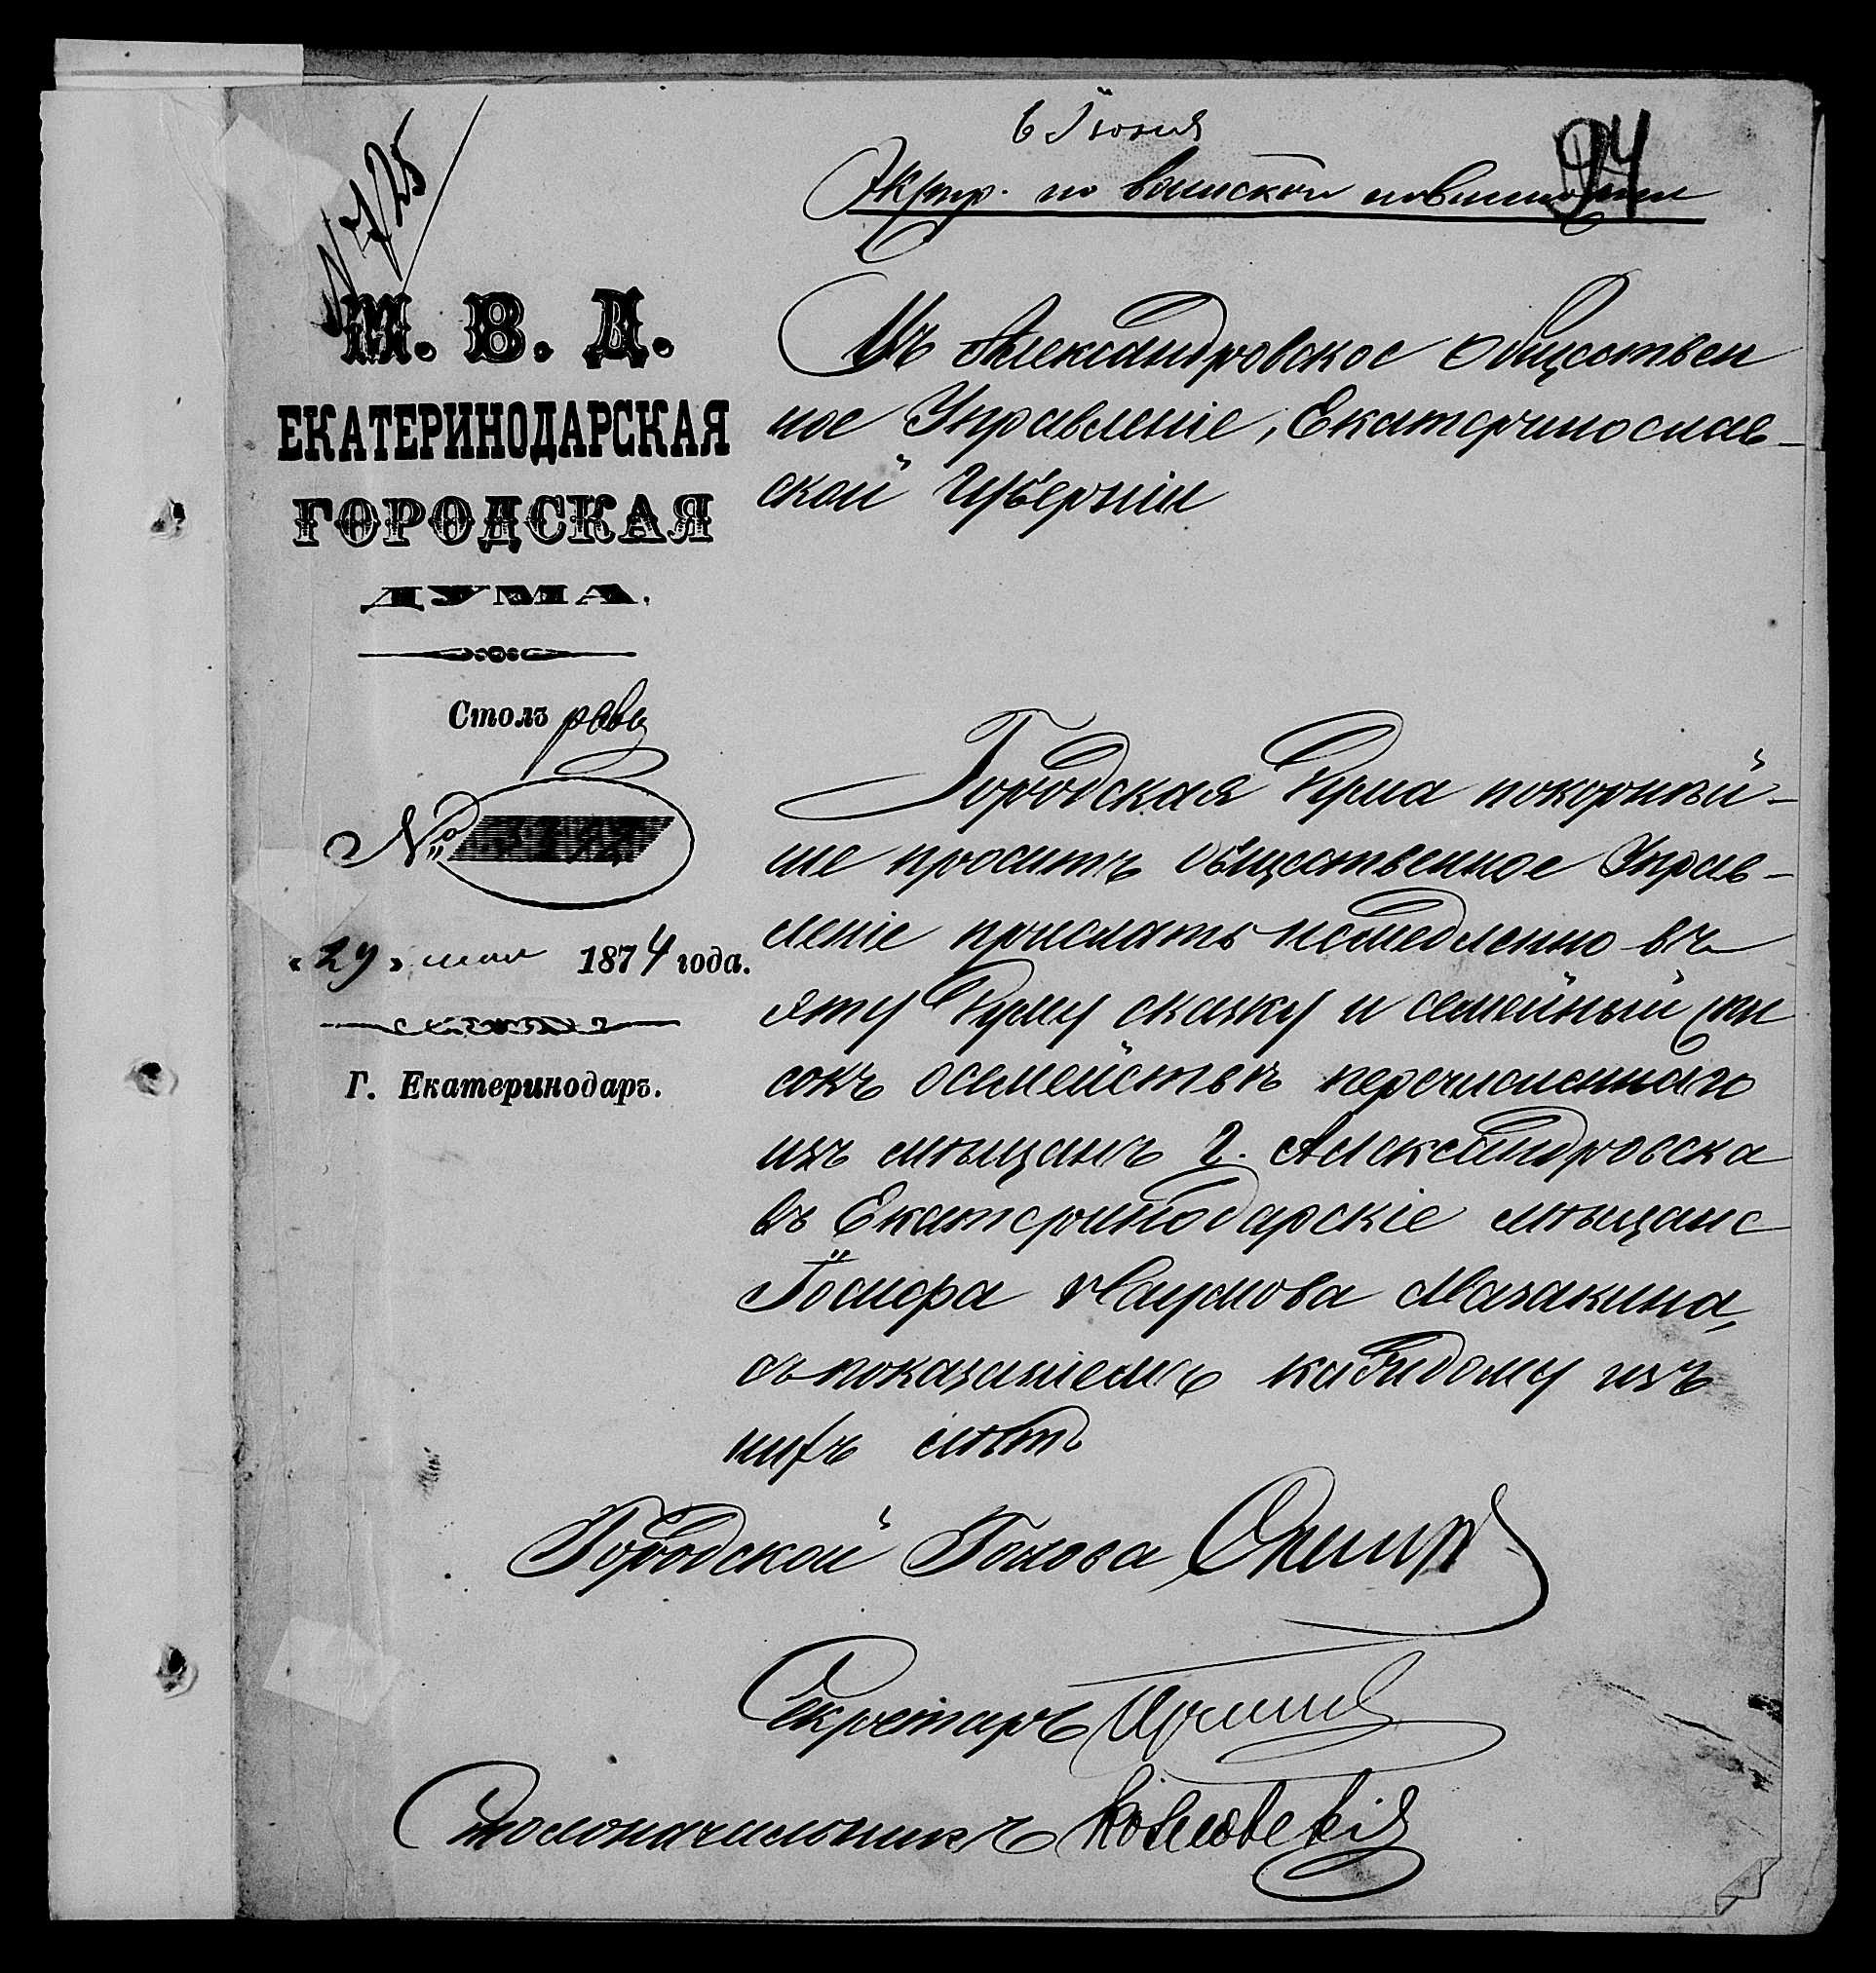 6 Іюня
94
№ 725
Экстр. по воинской повинности
М. В. Д.
ЕКАТЕРИНОДАРСКАЯ
ГОРОДСКАЯ
ДУМА.
Столъ
№
«29» мая 1874 года.
Г. Екатеринодаръ.
Въ Александровское Обществен
ное Управленіе, Екатеринослав-
ской Губерніи
Городская Дума покорнѣй-
ше проситъ Общественное Управ-
леніе прислать немедленно въ
эту Думу сказку и семейный спи
сокъ осемействѣ перечисленнаго
изъ мѣщанъ г. Александровска
въ Екатеринодарскіе мѣщане
Іосифа Наумова Мазакина,
съ показаніемъ каждому изъ
нихъ лѣтъ
Городской Голова
Секретарь
Столоначальникъ